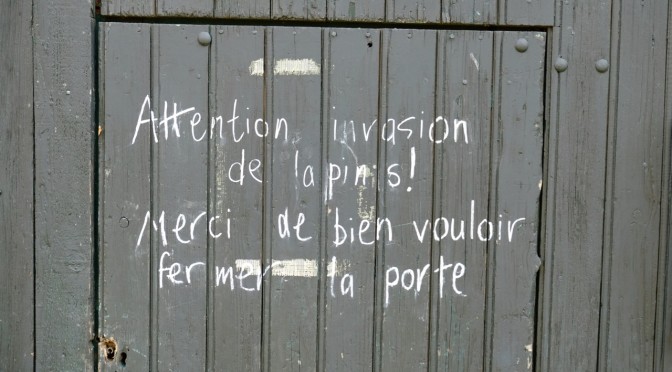 Attention invasion
de lapins!
Merci de bien vouloir
fermer la porte